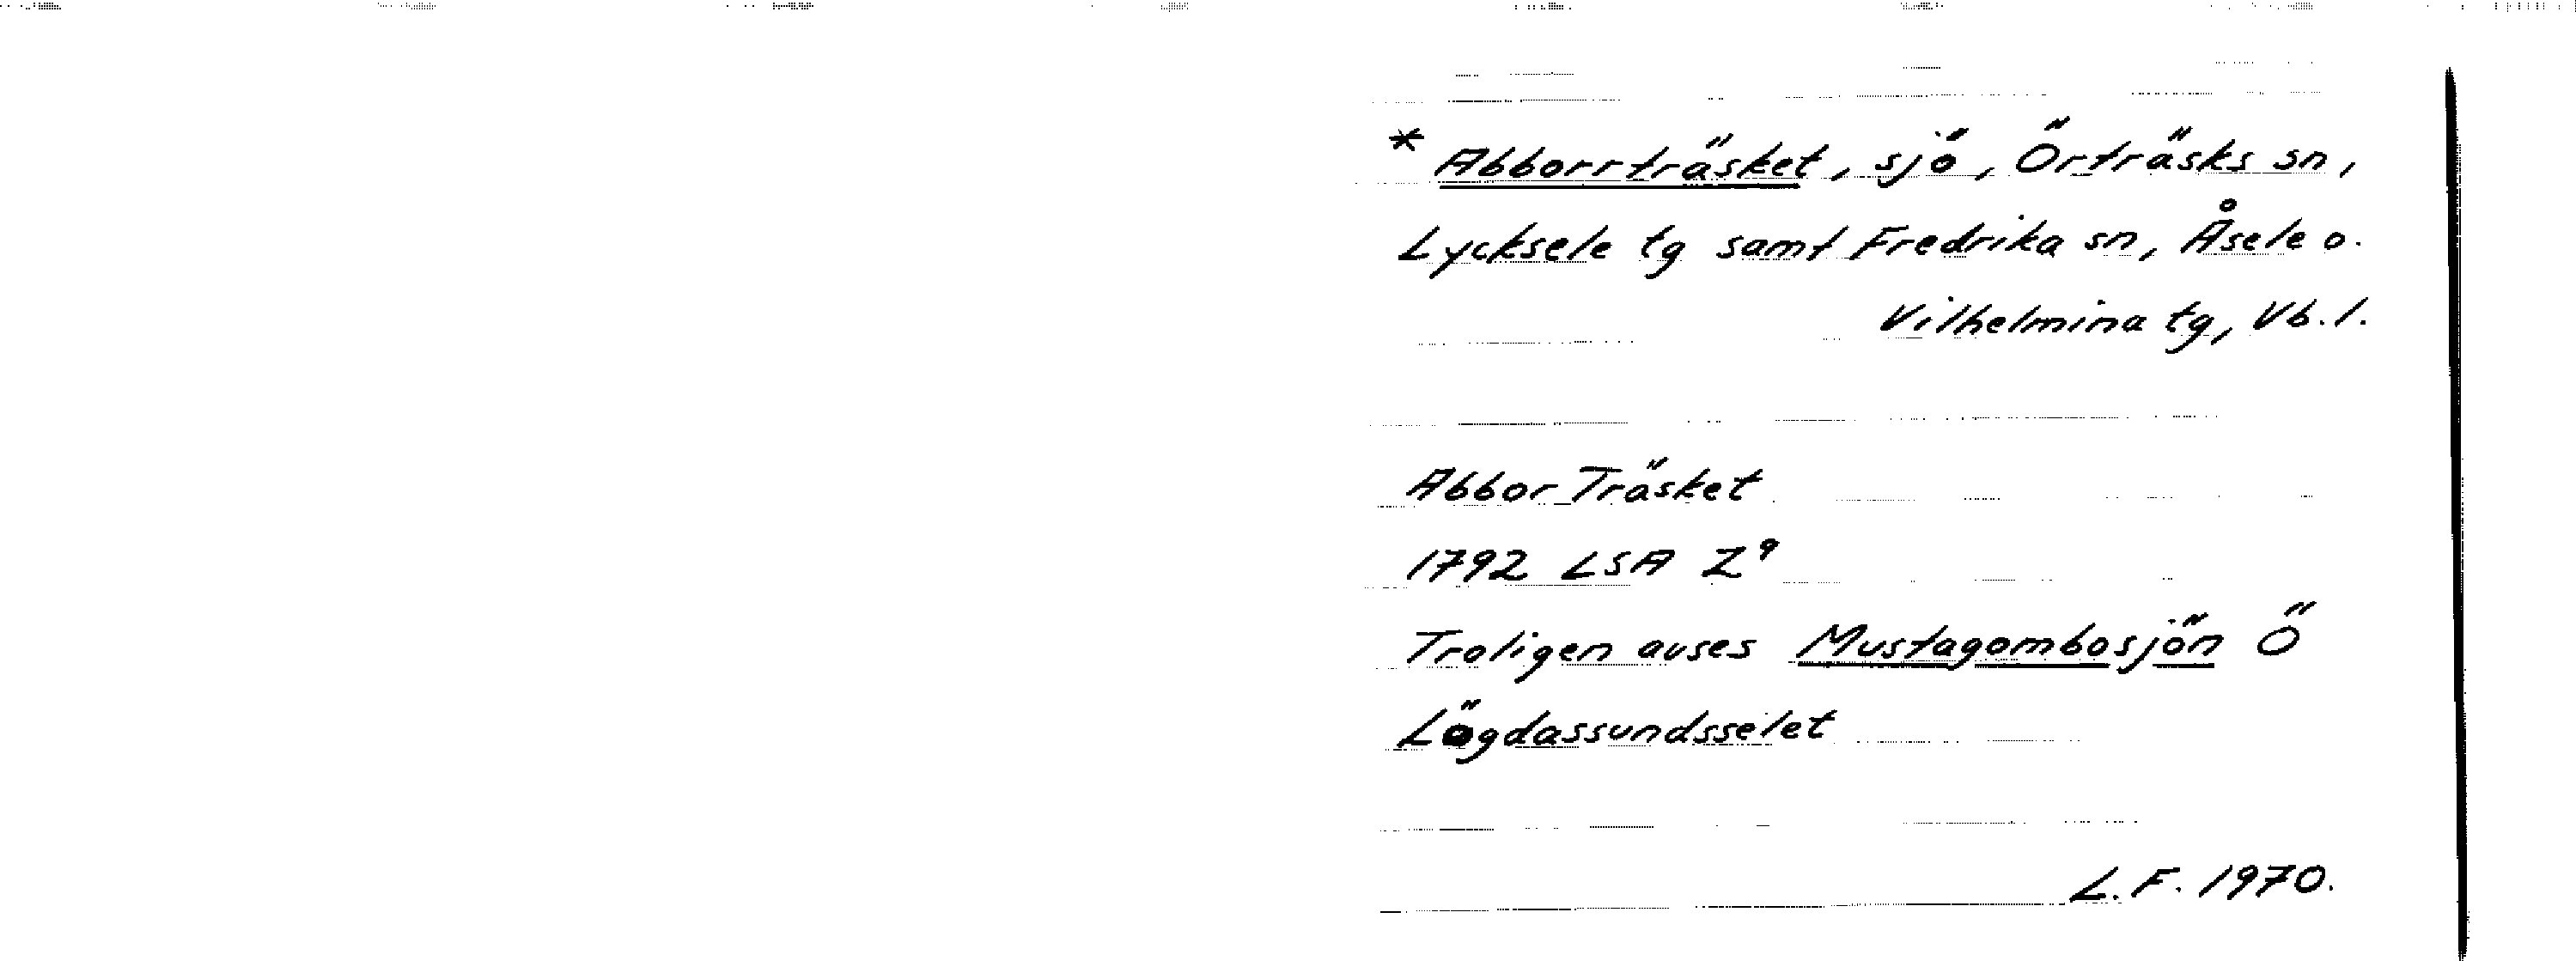 * Abborrträsket, sjö, Örträsks sn,
Lycksele tg samt Fredrika sn, Åsele o.
Vilhelmina tg, Vb. l.
Abbor Träsket
1792 LSA Z⁹
Troligen avses Mustagombosjön Ö
Lögdassundsselet
L. F. 1970.